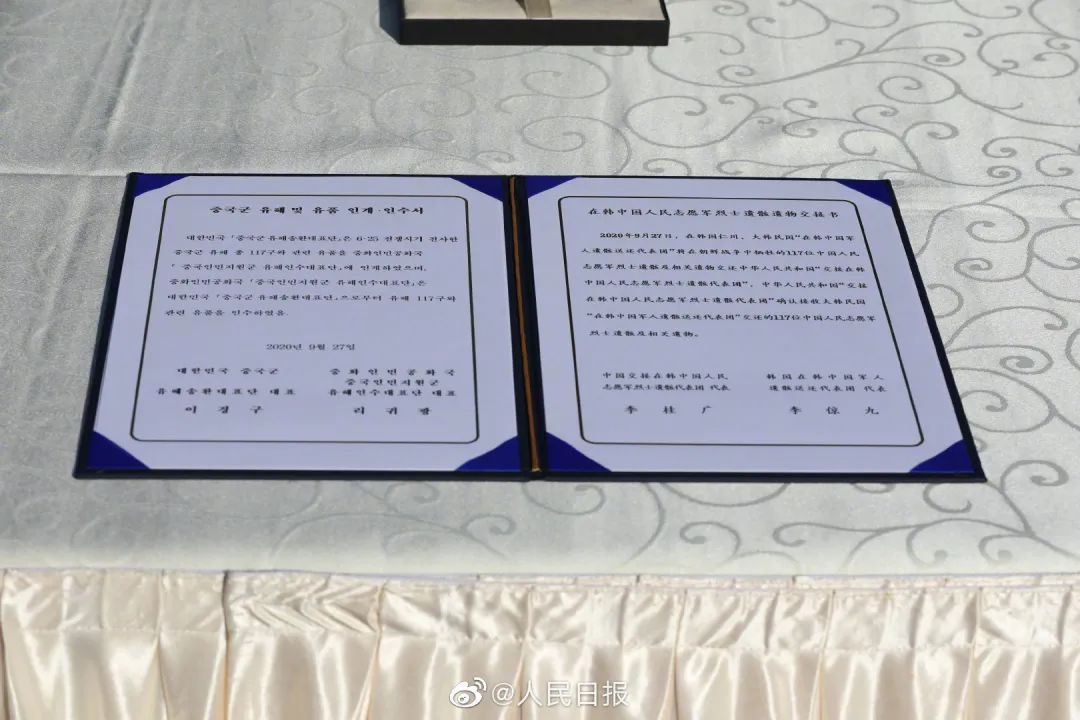 중국군 유해 및 유품 인계·인수서
대한민국 「중국군 유해송환대표단」은 6·25 전쟁시기 전사한
중국군 유해 총 117구와 관련 유품을 중화인민공화국
「중국인민지원군 유해인수대표단」에 인계하였으며,
중화인민공화국 「중국인민지원군 유해인수대표단」은
대한민국 「중국군 유해송환대표단」으로부터 유해 117구와
관련 유품을 인수하였음.
2020년 9월 27일
대한민국 중국군
유해송환대표단 대표
이경구
중화인민공화국
중국인민지원군
유해인수대표단 대표
리귀광
在韩中国人民志愿军烈士遗骸遗物交接书
2020年9月27日,在韩国仁川,大韩民国“在韩中国军
人遗骸送还代表团”将在朝鲜战争中牺牲的117位中国人民
志愿军烈士遗骸及相关遗物交还中华人民共和国“交接在韩
中国人民志愿军烈士遗骸代表团”,中华人民共和国“交接
在韩中国人民志愿军烈士遗骸代表团”确认接收大韩民国
“在韩中国军人遗骸送还代表团”交还的117位中国人民志愿军
烈士遗骸及相关遗物。
中国交接在韩中国人民
志愿军烈士遗骸代表团 代表
李桂广
韩国在韩中国军人
遗骸送还代表团 代表
李倞九
@人民日报